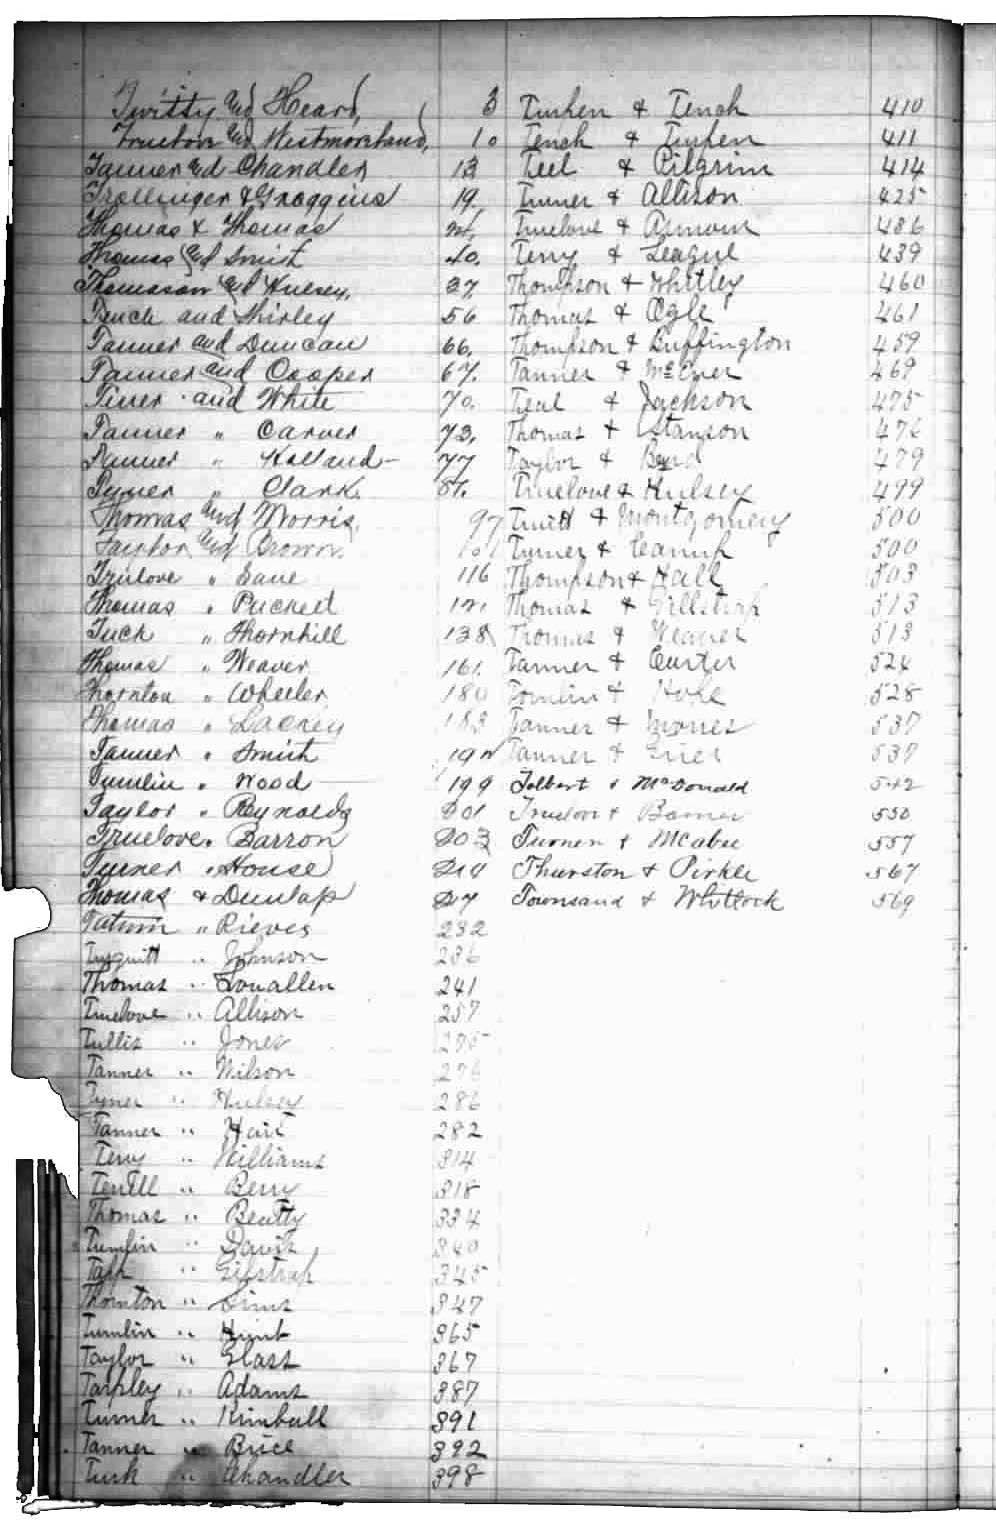 Twitty and Heard 3
and Westmoreland, 10
Tanner and Chandler 13
Trollinger & Groggins 19.
Thomas & Thomas 21.
Thomas and Smith 40.
Thomason and Hulsey, 37
Tench and Shirley 56
Tanner and Duncan 66.
Tanner and Cooper 67.
Tiner and White 70.
Tanner " Carver 73.
Tanner " Holland 77
Tyner " Clark. 81.
Thomas and Morris, 97
Taylor and Brown 101
Trulove " Lane 116
Thomas " Puckett 121
Tuck " Thornhill 138
Thomas " Weaver 161.
Thornton " Wheeler 180
Thomas " Lackey 183
Tanner " Smith 192
Tumlin " Wood 199
Taylor " Reynolds 201
Truelove " Barron 203
Turner " House
Thomas & Dunlap
Tatum " Rieves 232
" Johnson 236
Thomas " Louallen 241
Truelove " Allison 257
Tullis " Jones 275
Tanner " Wilson 276
Tyner " Hulsey 286
Tanner " Hair 282
Terry " Williams 314
Terrell " Berry 318
Thomas " Beatty 334
Tumlin " Davis 340
Tapp " Gilstrap 345
Thornton " Sims 347
Tumlin " Hunt 365
Taylor " Glass 367
Tarpley " Adams 387
Turner " Kimball 391
Tanner " Brice 392
Turk " Chandler 398
& Tench 410
Tench & 411
Teel & Pilgrim 414
Turner & Allison 425
Truelove & Armour 486
Terry & League 439
Thompson & Whitley 460
Thomas & Ogle 461
Thompson & Buffington 459
Tanner & McEver 469
Teal & Jackson 475
Thomas & Stanson 476
Taylor & Byrd 479
Truelove & Hulsey 499
Truitt & Montgomery 500
Turner & Camp 500
Thompson & Hall 503
Thomas & Gillstrap 513
Thomas & Weaver 513
Tanner & Carter 524
Tomlin & Hope 528
Tanner & 537
Tanner & Grier 537
Tolbert & McDonald 542
& 550
Turner & McAbee 557
Thurston & Pirkle 567
Townsand & Whitlock 569